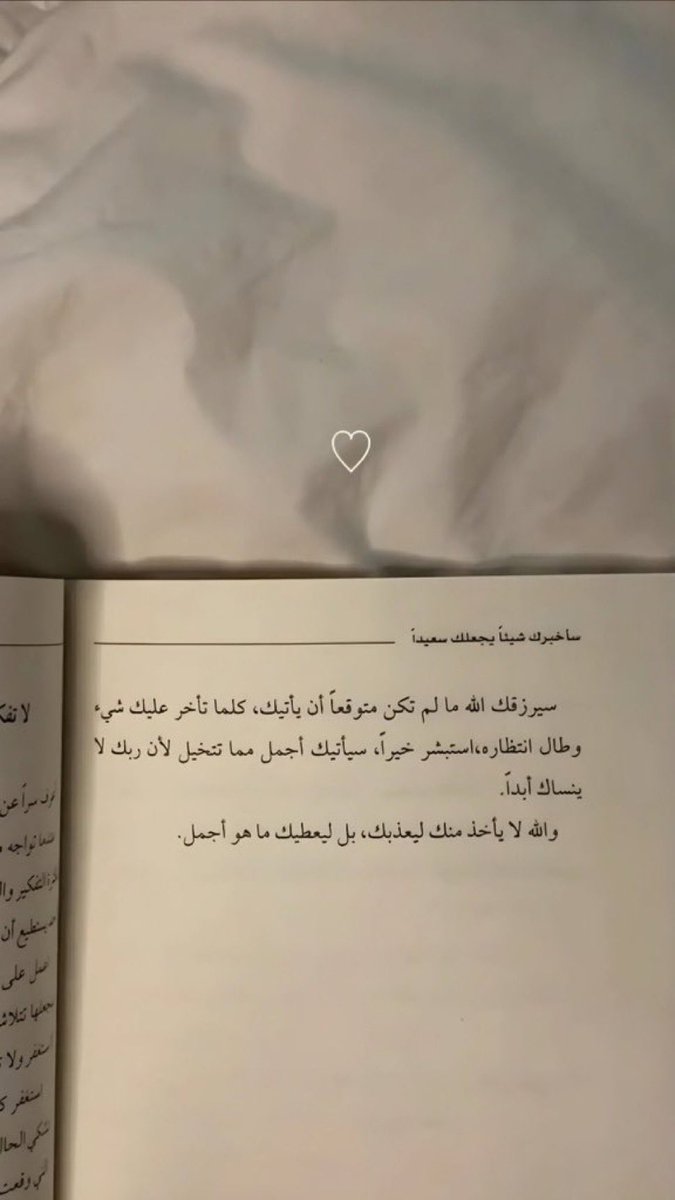 سأخبرك شيئاً يجعلك سعيداً
سيرزقك الله ما لم تكن متوقعاً أن يأتيك، كلما تأخر عليك شيء
وطال انتظاره،استبشر خيراً، سيأتيك أجمل مما تتخيل لأن ربك لا
ينساك أبداً.
والله لا يأخذ منك ليعذبك، بل ليعطيك ما هو أجمل.
سراً عن
تواجه
التفكير
يستطيع أن
على
استغفر ولا
استغفر
وقعت